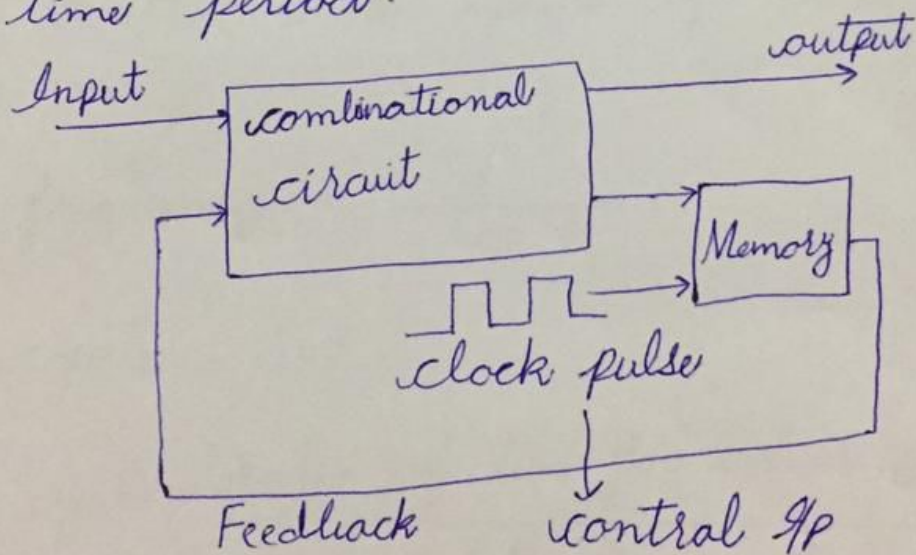 time period.
Input
output
combinational
circuit
Memory
clock pulse
Feedback
control I/P